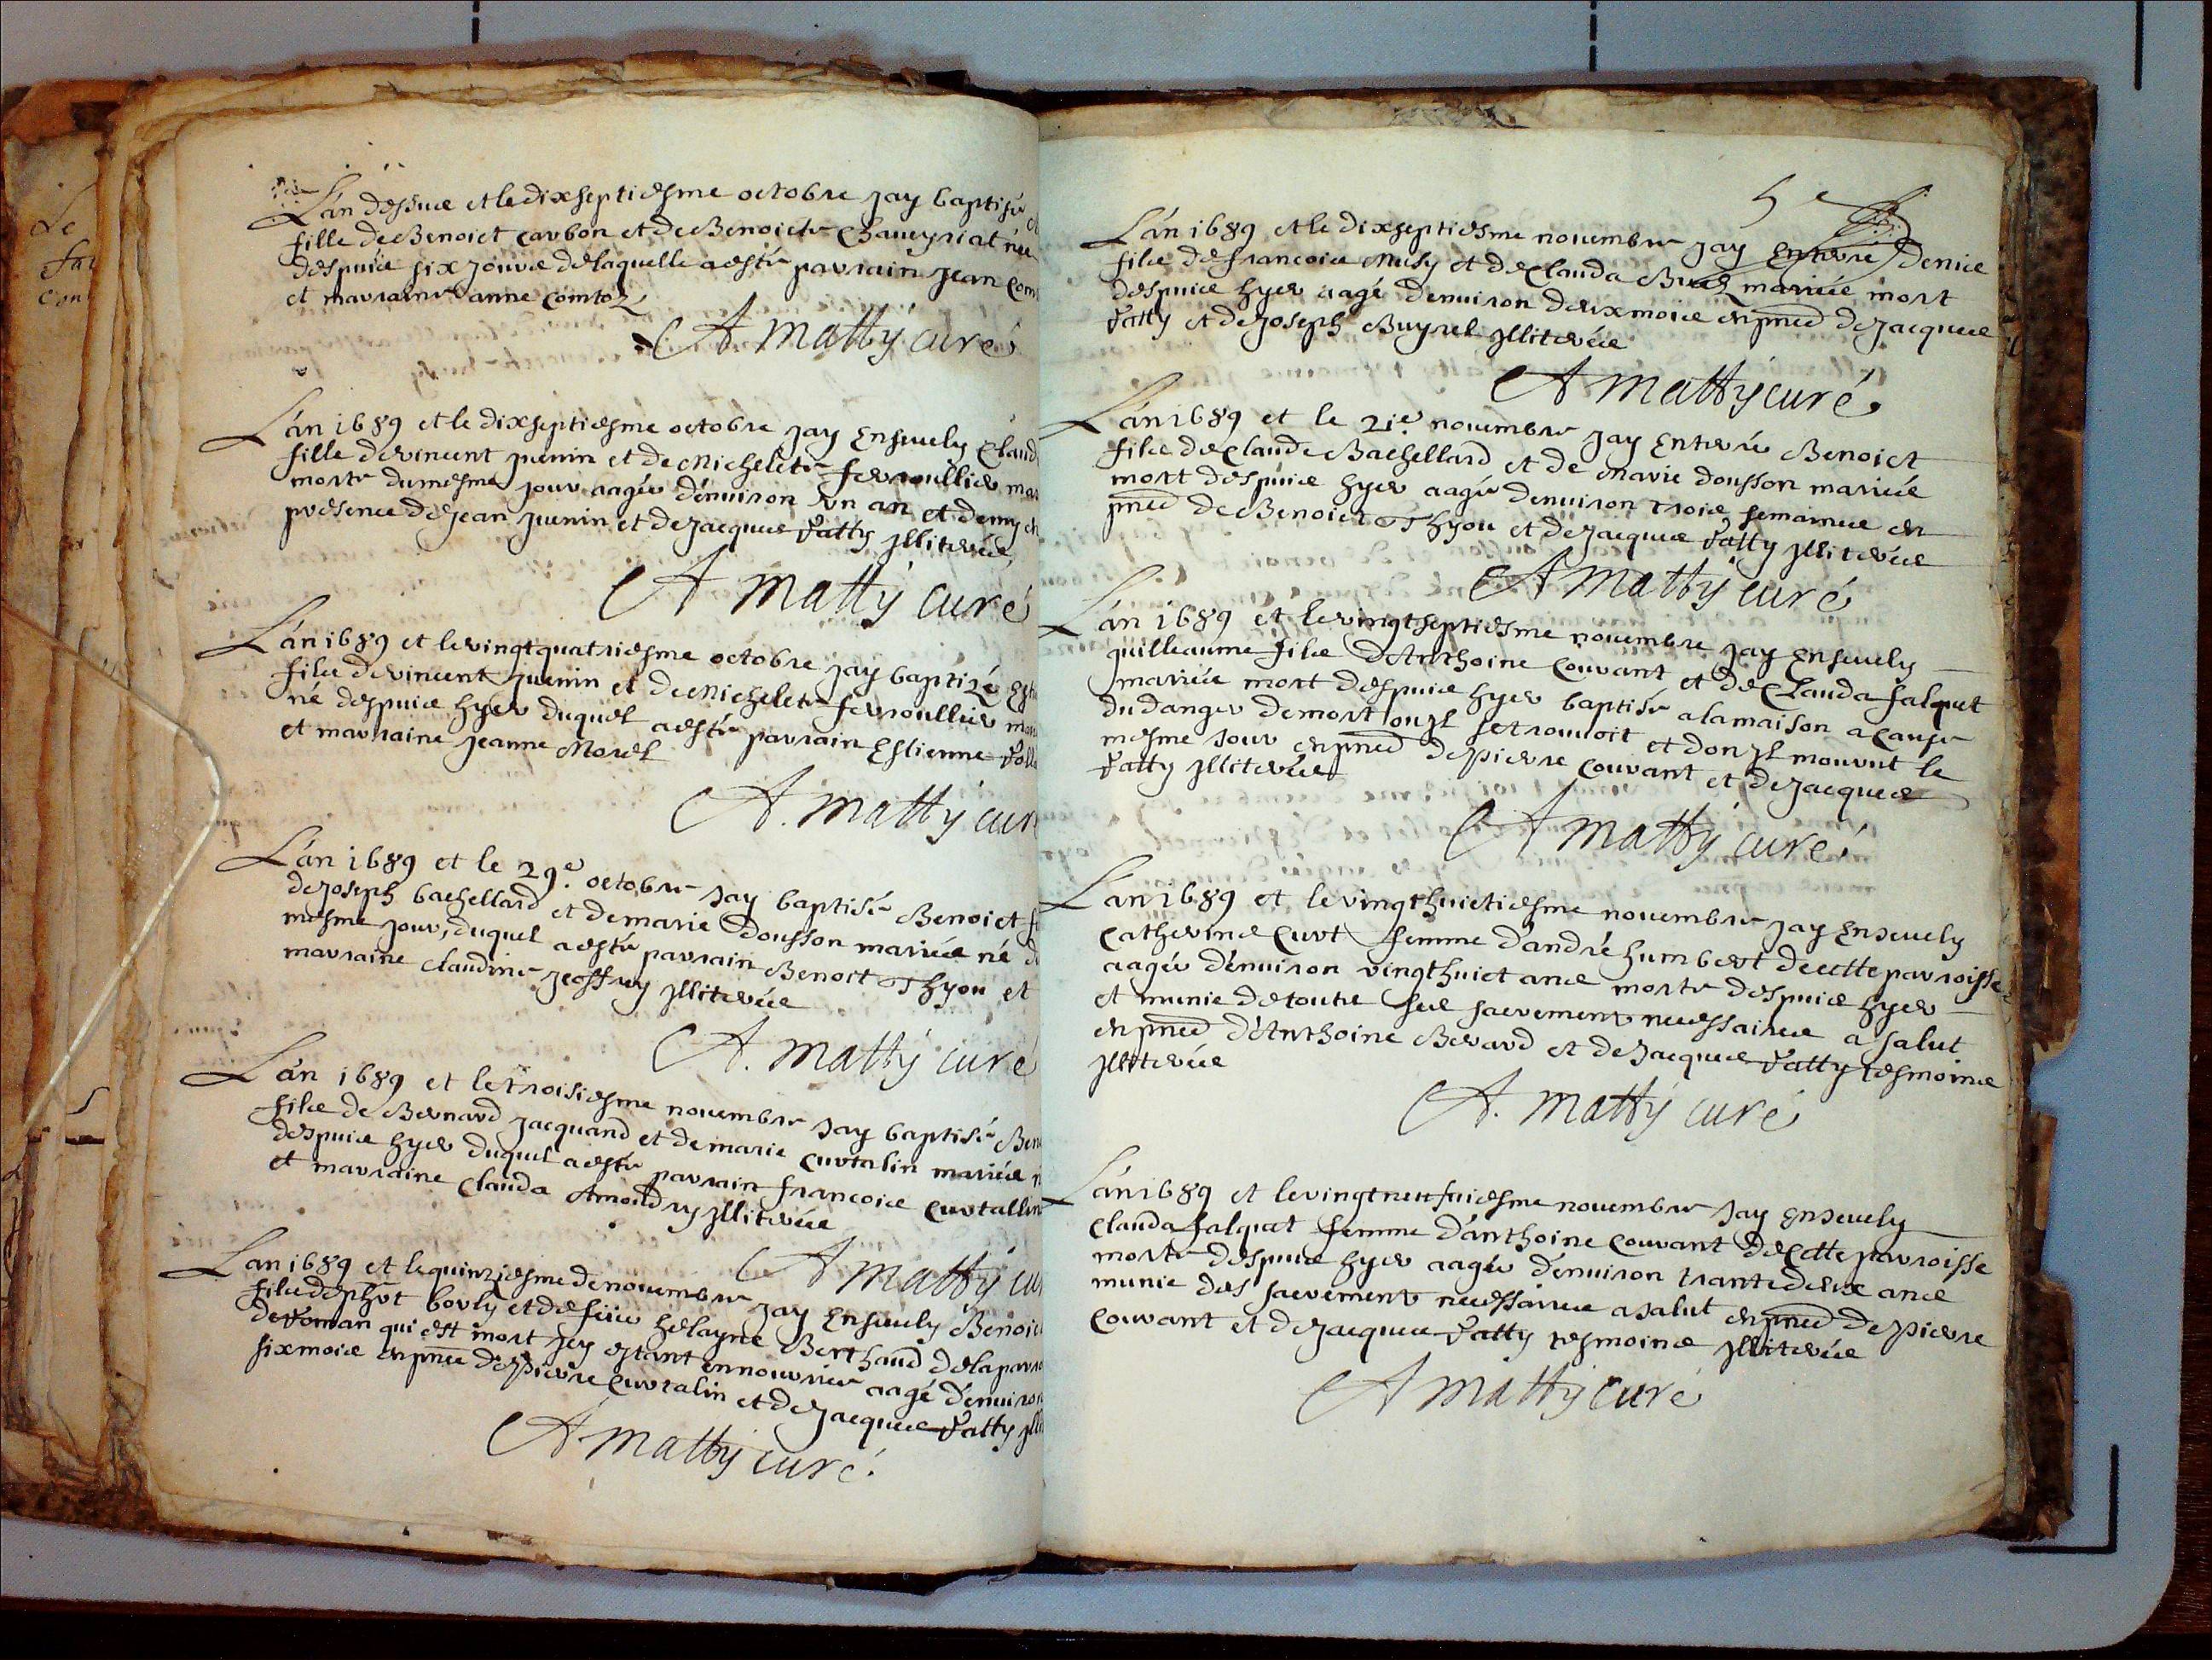 L'an dessus et le dixseptiesme octobre jay baptisé
fille de Benoict Carbon et de Benoicte Chaveyriat née
despuis six jours de laquelle a esté parrain jean Com
et marraine anne Comtoz
A Matty curé
L'an 1689 et le dixseptiesme octobre jay ensevely Claud
fille de vincent juenin et de Michelete ferroullier mar
morte du mesme jour aagée d'environ un an et demy en
presence de jean juenin et de jacques Vatty jlliterés
A Matty curé
L'an 1689 et le vingtquatriesme octobre jay baptizé
fils de vincent juenin et de Michelete ferroullier mar
né despuis hyer duquel a esté parrain Estienne
et marraine jeanne Morel
A. Matty cur
L'an 1689 et le 29e. octobre jay baptisé Benoict
de joseph bachellard et de marie dousson mariés né d
mesme jour, duquel a esté parrain Benoit Thyou et
marraine claudine jeoffray jlliterés
A. Matty curé
L'an 1689 et le troisiesme novembre jay baptisé Ben
fils de Bernard jacquand et de marie Curtalin mariés n
despuis hyer duquel a esté parrain francois Curtallin
et marraine Clauda Amondry jlliterés
A Matty cu
L'an 1689 et le quinziesme de novembre jay ensevely Benoic
fils de phbt borly et de feüe helayne Berthaud de la parr
de Roman qui est mort jcy estant en nourrice aagé d'environ
six mois en pnce de pierre Curtalin et de jacques Vatty jlli
A Matty curé.
5e
L'an 1689 et le dixseptiesme novembre jay enterré denis
fils de francois Musy et de Clauda mariés mort
despuis hyer aagé d'environ deux mois en pnce de jacques
Vatty et de joseph Buyrel jlliterés
A Matty curé
L'an 1689 et le 21e. novembre jay enterré Benoict
fils de Claude Bachellard et de Marie dousson mariés
mort despuis hyer aagé d'environ trois semaines en
pnce de Benoict Thyou et de jacques Vatty jlliterés
A Matty curé
L'an 1689 et le vingtseptiesme novembre jay ensevely
guilleaume fils d'Anthoine Couvant et de Clauda falquet
mariés mort despuis hyer baptisé a la maison a cause
du danger de mort ou jl se trouvoit et don jl mourut le
mesme jour en pnce de pierre Couvant et de jacques
Vatty jlliterés
A Matty curé.
L'an 1689 et le vingthuictiesme novembre jay ensevely
Catherine Curt femme d'andré humbert de cette parroisse
aagée d'environ vingthuict ans morte despuis hyer
et munie de toute ses sacrements necessaires a salut
en pnce d'Anthoine Berard et de jacques Vatty tesmoins
jlliterés
A. Matty curé
L'an 1689 et le vingtneufviesme novembre jay ensevely
Clauda falquet femme d'anthoine Couvant de cette parroisse
morte despuis hyer aagée d'environ trante deux ans
munie des sacrements necessaires a salut en pnce de pierre
Couvant et de jacques Vatty tesmoins jlliterés
A Matty curé